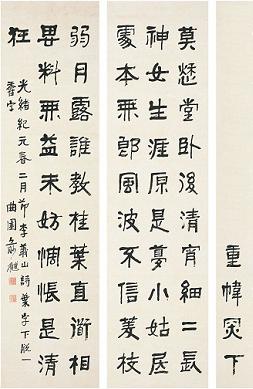 重幃罙下
莫愁堂卧後清宵細二長
神女生涯原是夢小姑居
處本無郎風波不信菱枝
弱月露誰教桂葉直衜相
思料無益未妨惆悵是清
狂
光緒紀元春二月節李義山詩葉字下脱一
香字 曲園俞樾